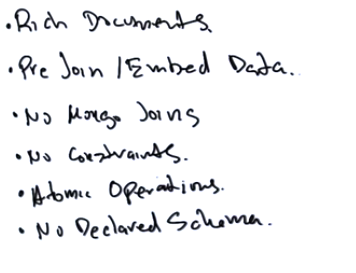 • Rich Documents
• Pre Join / Embed Data.
• No Mongo Joins
• No Constraints.
• Atomic Operations.
• No Declared Schema.